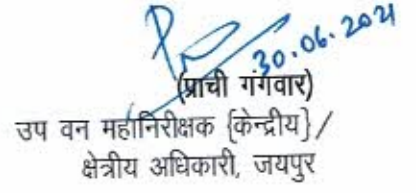 30.06.2021
(प्राची गंगवार)
उप वन महानिरीक्षक {केन्द्रीय} /
क्षेत्रीय अधिकारी, जयपुर